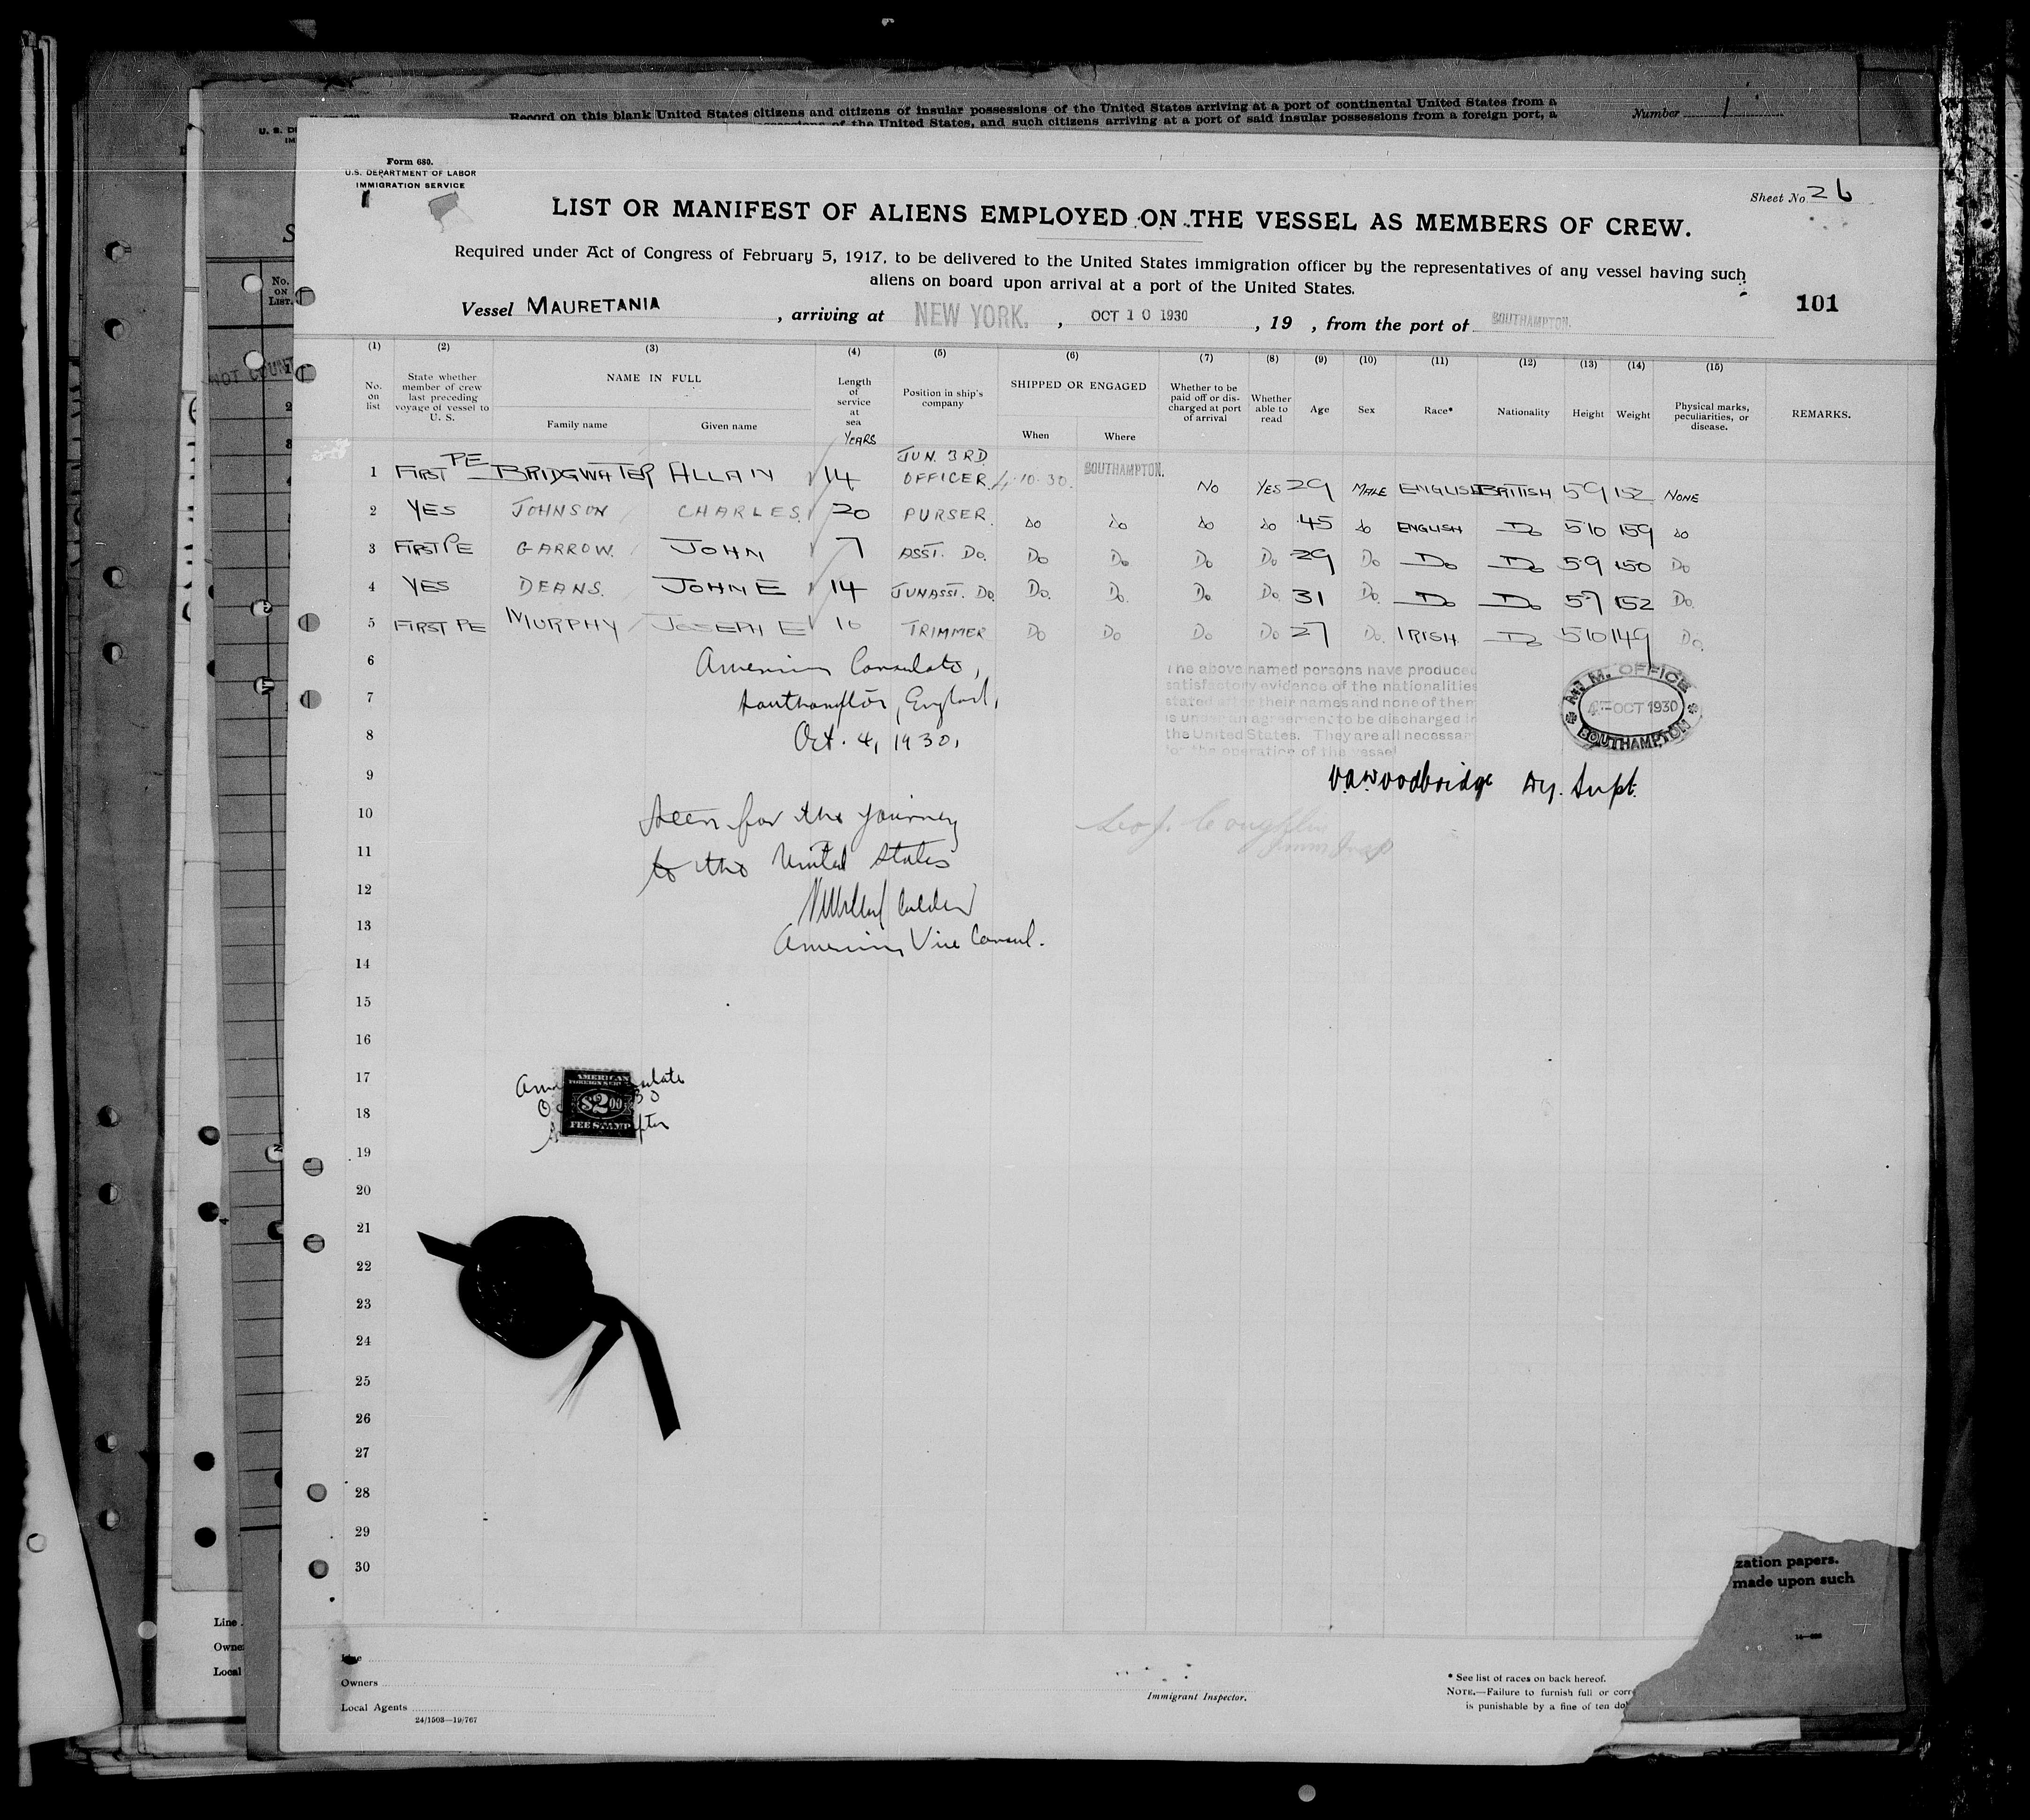 Record on this blank United States citizens and citizens of insular possessions of the United States arriving at a port of continental United States from a
of the United States, and such citizens arriving at a port of said insular possessions from a foreign port, a
Number 1
Form 680.
U.S. DEPARTMENT OF LABOR
IMMIGRATION SERVICE
1
Sheet No. 26
LIST OR MANIFEST OF ALIENS EMPLOYED ON THE VESSEL AS MEMBERS OF CREW.
Required under Act of Congress of February 5, 1917, to be delivered to the United States immigration officer by the representatives of any vessel having such
aliens on board upon arrival at a port of the United States.
101
Vessel MAURETANIA, arriving at NEW YORK., OCT 10 1930, 19 , from the port of SOUTHAMPTON.
No. on List.
NOT COUNT
(1) (2) (3) (4) (5) (6) (7) (8) (9) (10) (11) (12) (13) (14) (15)
No. on list
State whether member of crew last preceding voyage of vessel to U. S.
NAME IN FULL
Family name Given name
Length of service at sea
YEARS
Position in ship's company
SHIPPED OR ENGAGED
When Where
Whether to be paid off or discharged at port of arrival
Whether able to read
Age
Sex
Race*
Nationality
Height
Weight
Physical marks, peculiarities, or disease.
REMARKS.
1 FIRST PE BRIDGWATER ALLAN 14 JUN. 3RD OFFICER 4.10.30. SOUTHAMPTON. NO YES 29 MALE ENGLISH BRITISH 59 152 NONE
2 YES JOHNSON CHARLES. 20 PURSER. do do do do 45 do ENGLISH Do 510 159 do
3 FIRST PE GARROW. JOHN 7 ASST. Do. Do Do Do Do 29 Do Do Do 5·9 150 Do
4 YES DEANS. JOHN E 14 JUN ASST. Do Do. Do. Do Do. 31 Do. Do Do 57 152 Do.
5 FIRST PE MURPHY JOSEPH E 10 TRIMMER Do Do Do Do 27 Do. IRISH. Do 5·10 149 Do.
6
7
8
9
10
11
12
13
14
15
16
17
18
19
20
21
22
23
24
25
26
27
28
29
30
American Consulate,
Southampton, England,
Oct. 4, 1930,
Seen for the journey
to the United States
American Vice Consul.
The above named persons have produced
satisfactory evidence of the nationalities
stated after their names and none of them
is under an agreement to be discharged in
the United States. They are all necessary
for the operation of the vessel
M. M. OFFICE
4-OCT 1930
SOUTHAMPTON
V.A. Woodbridge Dy. Supt.
AMERICAN
FOREIGN SERV
$2.00
FEE STAMP
Line
Owners
Local Agents
24/1503—19/767
Immigrant Inspector.
* See list of races on back hereof.
NOTE.—Failure to furnish full or corre
is punishable by a fine of ten dol
zation papers.
made upon such
Line
Owne
Local